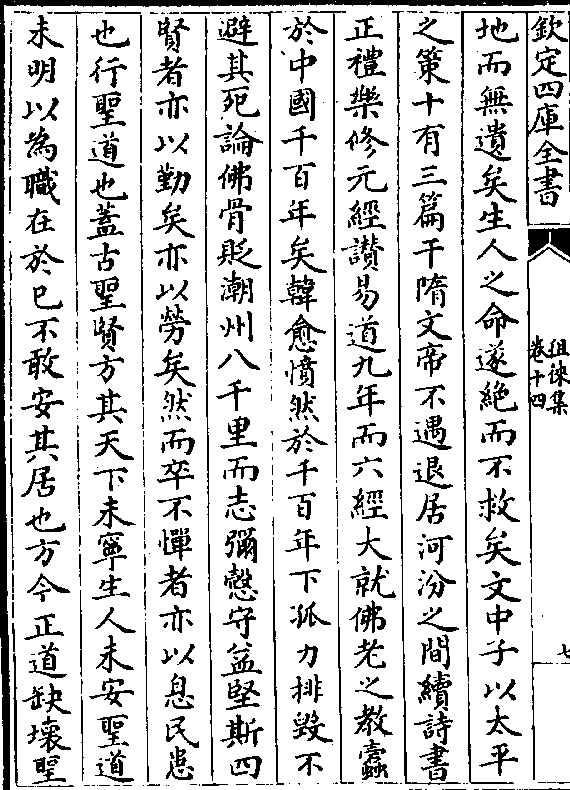 欽定四庫全書
徂徠集
卷十四
七
地而無遺矣生人之命遂絶而不救矣文中子以太平
之策十有三篇干隋文帝不遇退居河汾之間續詩書
正禮樂修元經讃易道九年而六經大就佛老之教蠹
於中國千百年矣韓愈憤然於千百年下孤力排毀不
避其死論佛骨貶潮州八千里而志彌慤守益堅斯四
賢者亦以勤矣亦以勞矣然而卒不憚者亦以息民患
也行聖道也蓋古聖賢方其天下未寧生人未安聖道
未明以為職在於已不敢安其居也方今正道缺壞聖